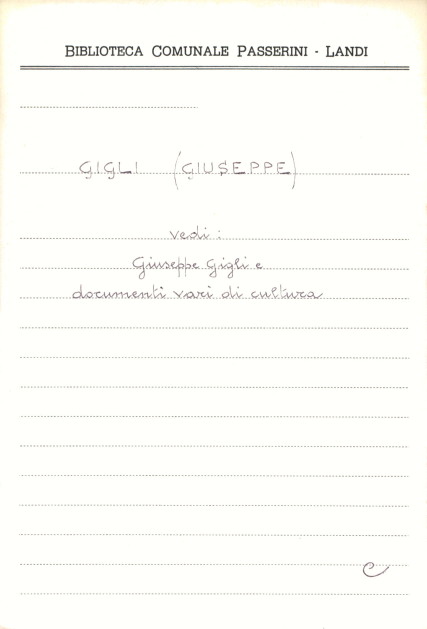 BIBLIOTECA COMUNALE PASSERINI - LANDI
GIGLI (GIUSEPPE)
vedi:
Giuseppe Gigli e
documenti vari di cultura
e